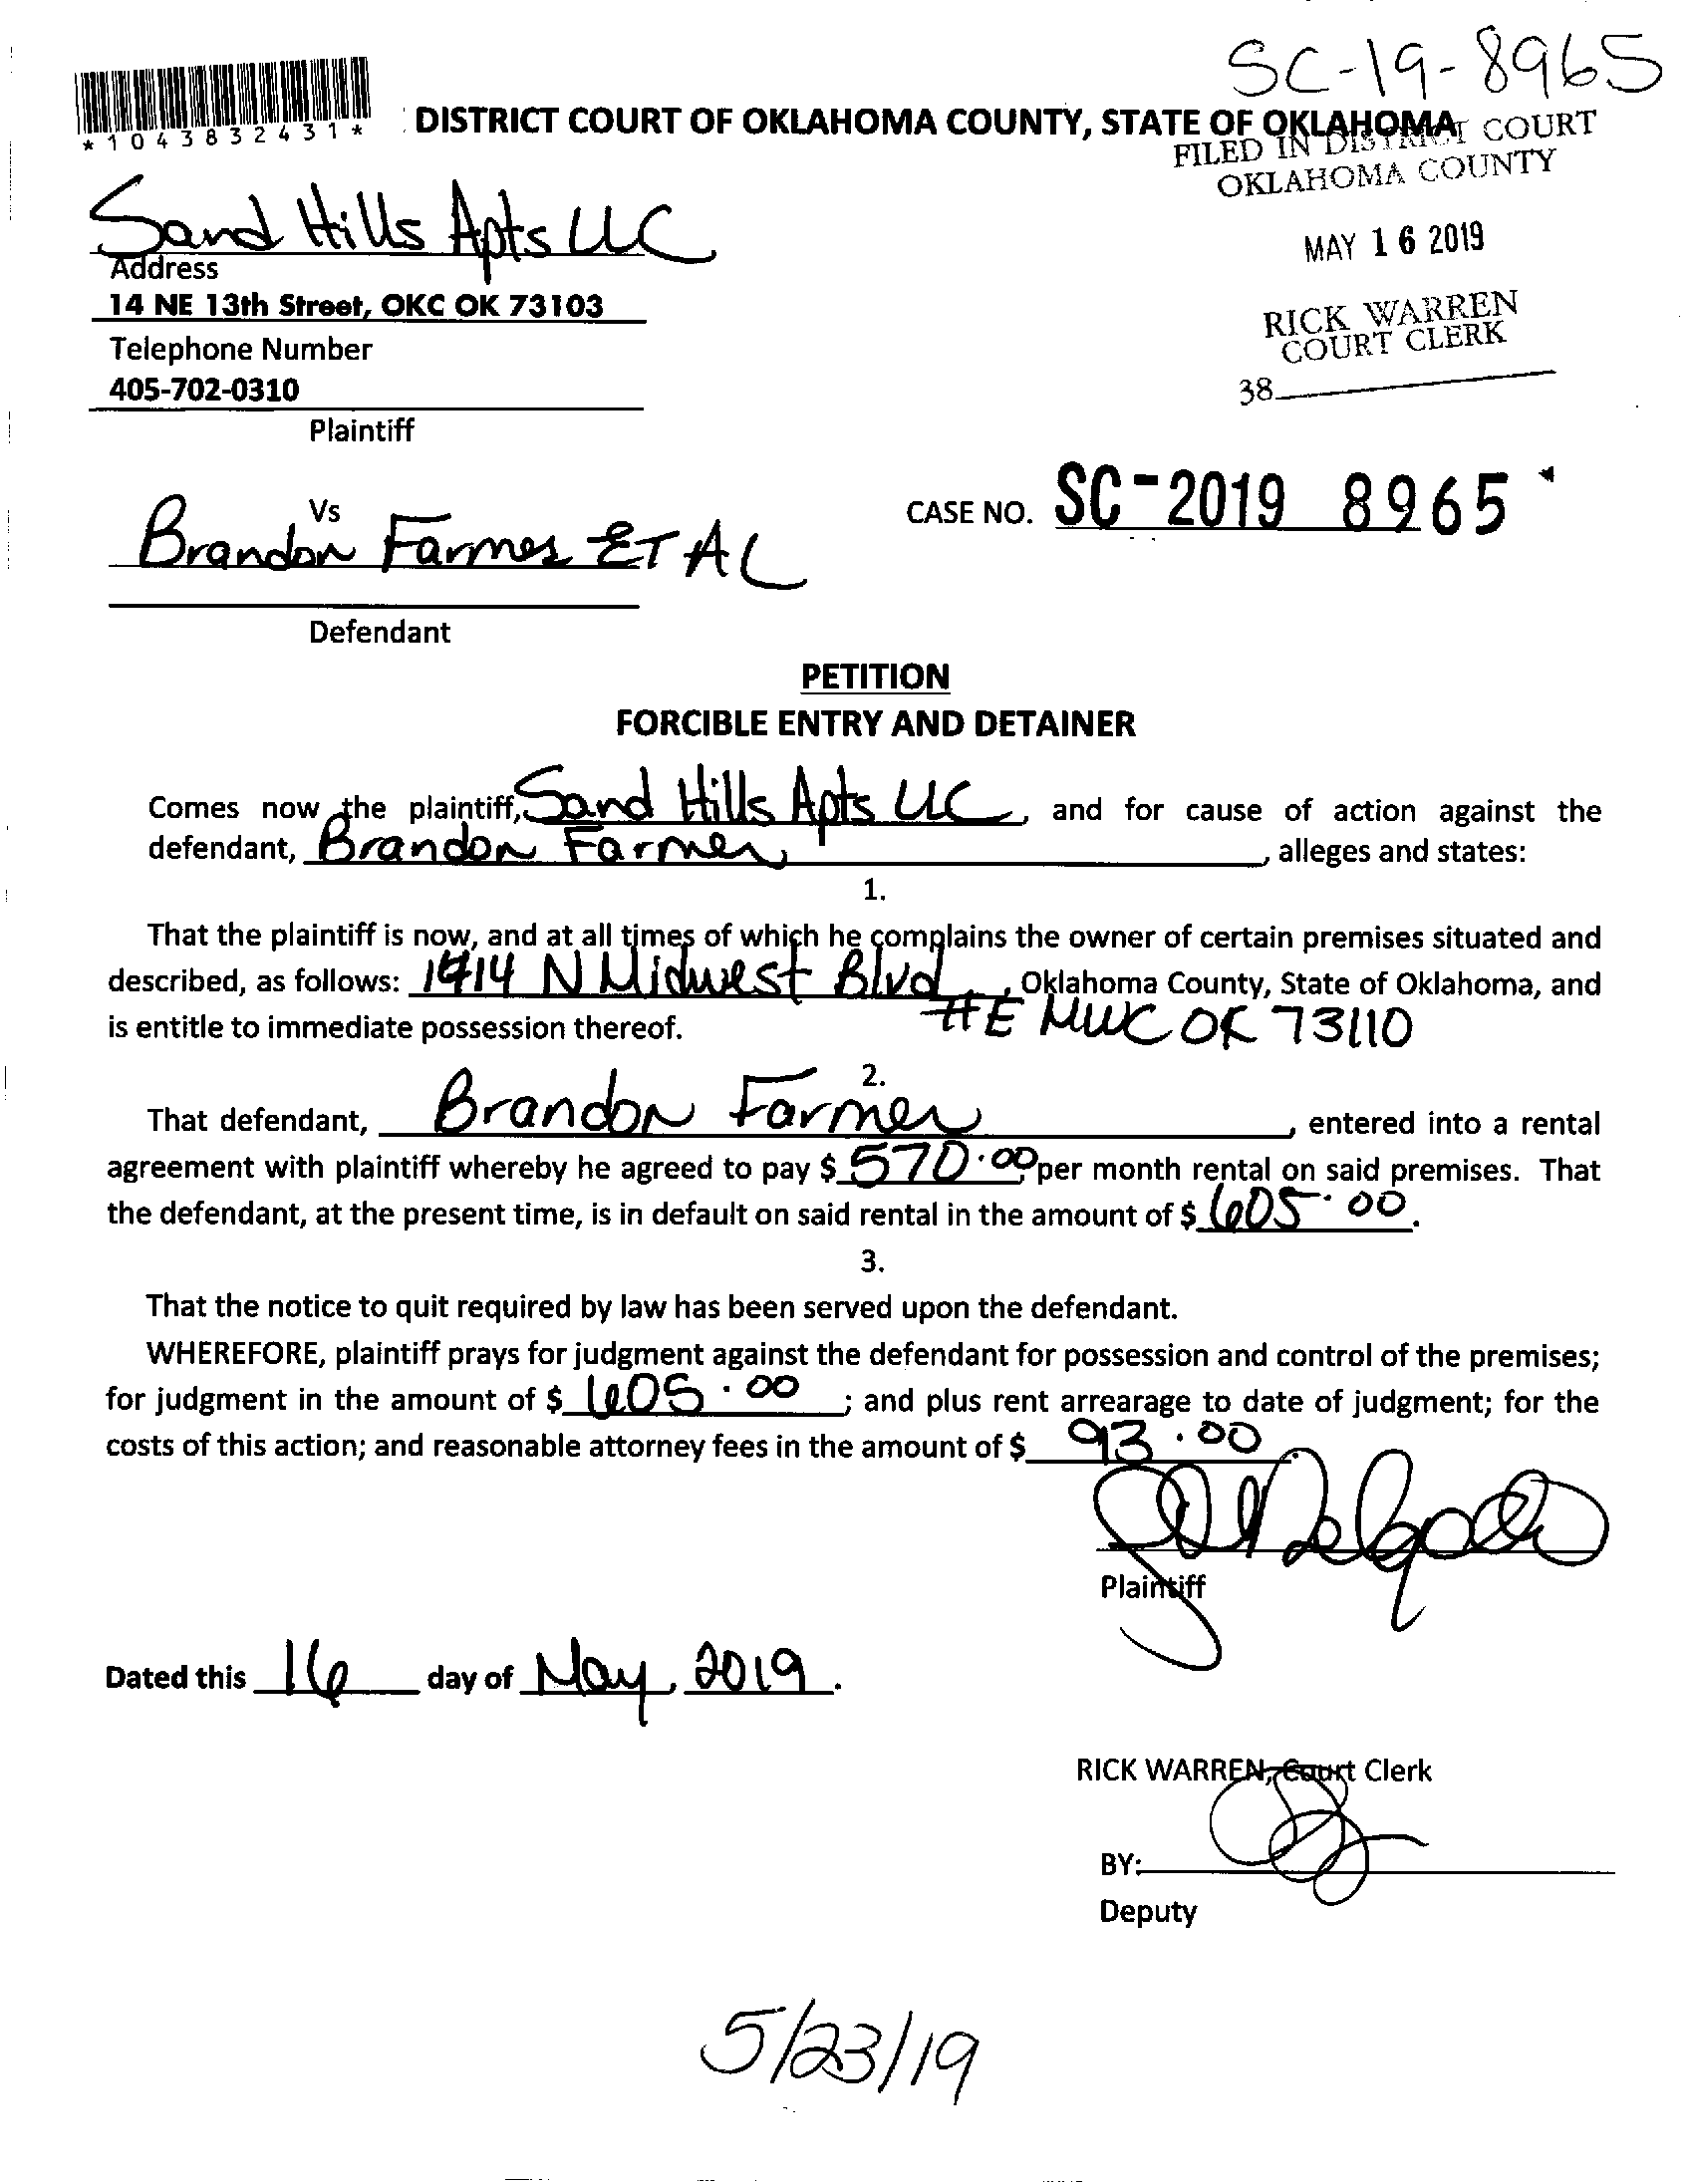 SC-19-8965
*1043832431*
DISTRICT COURT OF OKLAHOMA COUNTY, STATE OF OKLAHOMA
FILED IN DISTRICT COURT
OKLAHOMA COUNTY
MAY 16 2019
RICK WARREN
COURT CLERK
38
Sand Hills Apts LLC
Address
14 NE 13th Street, OKC OK 73103
Telephone Number
405-702-0310
Plaintiff
Vs
CASE NO. SC-2019 8965
Brandon Farmer ET AL
Defendant
PETITION
FORCIBLE ENTRY AND DETAINER
Comes now the plaintiff, Sand Hills Apts LLC, and for cause of action against the
defendant, Brandon Farmer, alleges and states:
1.
That the plaintiff is now, and at all times of which he complains the owner of certain premises situated and
described, as follows: 1414 N Midwest Blvd, Oklahoma County, State of Oklahoma, and
#E MWC OK 73110
is entitle to immediate possession thereof.
2.
That defendant, Brandon Farmer, entered into a rental
agreement with plaintiff whereby he agreed to pay $ 570.00 per month rental on said premises. That
the defendant, at the present time, is in default on said rental in the amount of $ 605.00.
3.
That the notice to quit required by law has been served upon the defendant.
WHEREFORE, plaintiff prays for judgment against the defendant for possession and control of the premises;
for judgment in the amount of $ 605.00; and plus rent arrearage to date of judgment; for the
costs of this action; and reasonable attorney fees in the amount of $ 93.00.
Plaintiff
Dated this 16 day of May, 2019.
RICK WARREN, Court Clerk
BY:
Deputy
5/23/19